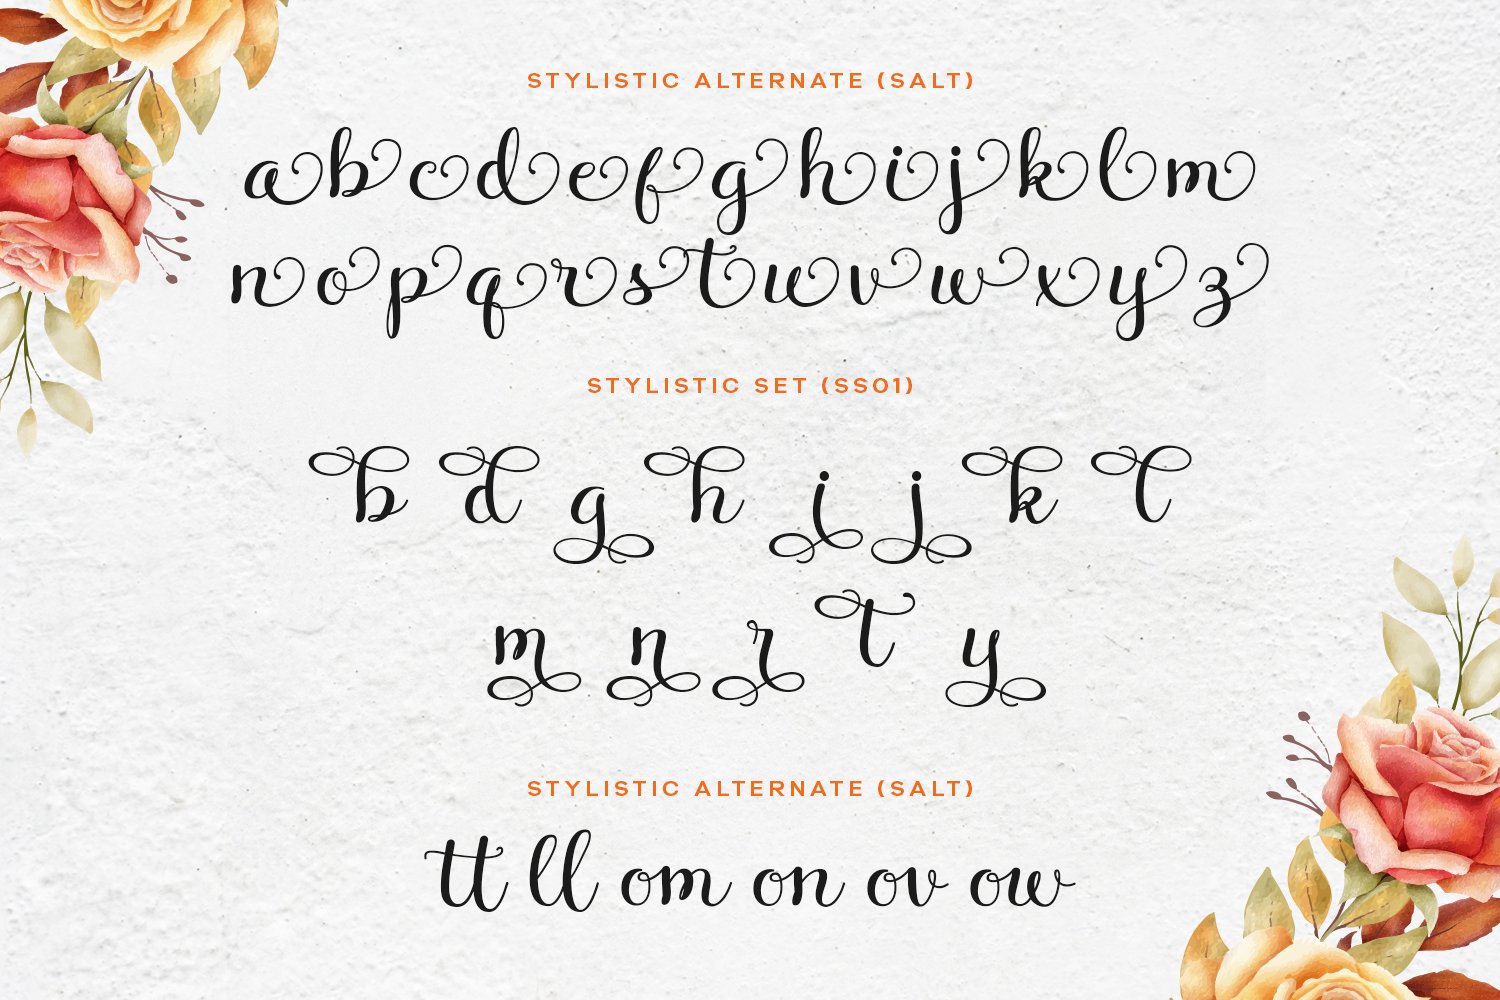 STYLISTIC ALTERNATE (SALT)
a b c d e f g h i j k l m
n o p q r s t u v w x y z
STYLISTIC SET (SS01)
b d g h i j k l
m n r t y
STYLISTIC ALTERNATE (SALT)
tt ll om on ov ow